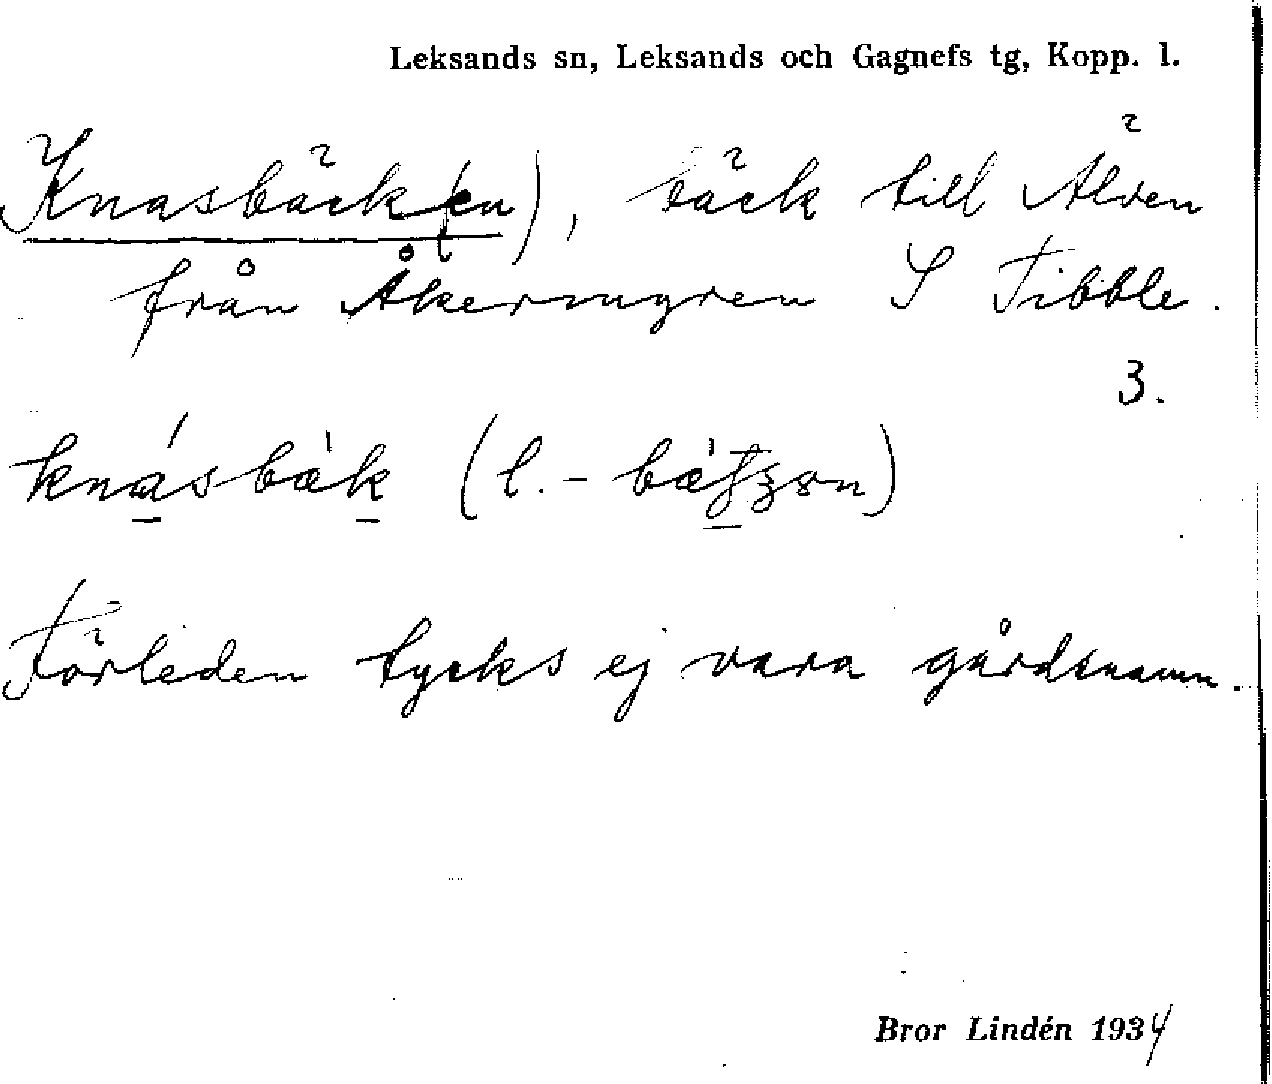 Leksands sn, Leksands och Gagnefs tg, Kopp. l.
Knasbäck(en), bäck till Älven
från Åkermyren S Tibble.
3.
knásbæ̀k (l. -
Förleden tycks ej vara gårdsnamn.
Bror Lindén 1934